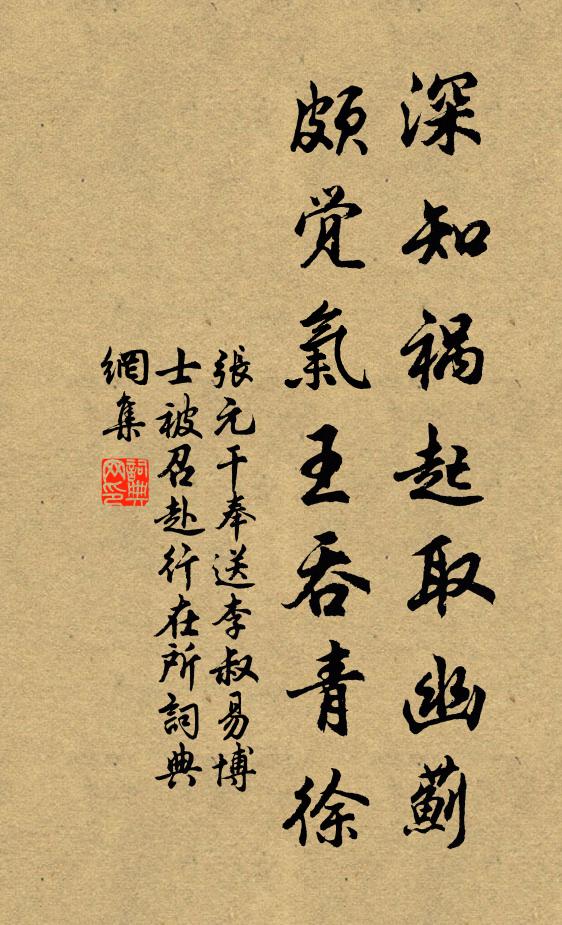 深知祸起取幽薊
頗觉氣王吞青徐
張元干奉送李叔易博
士被召赴行在所詞典
網集
詞典網印